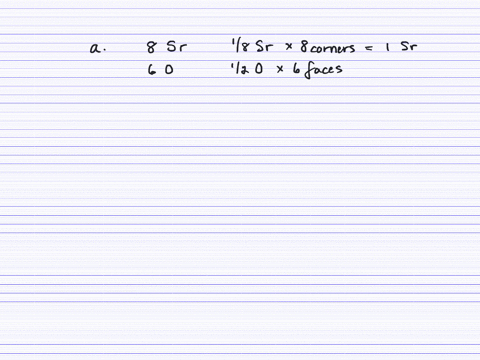 a. 8 Sr 1/8 Sr × 8 corners = 1 Sr
6 O 1/2 O × 6 faces